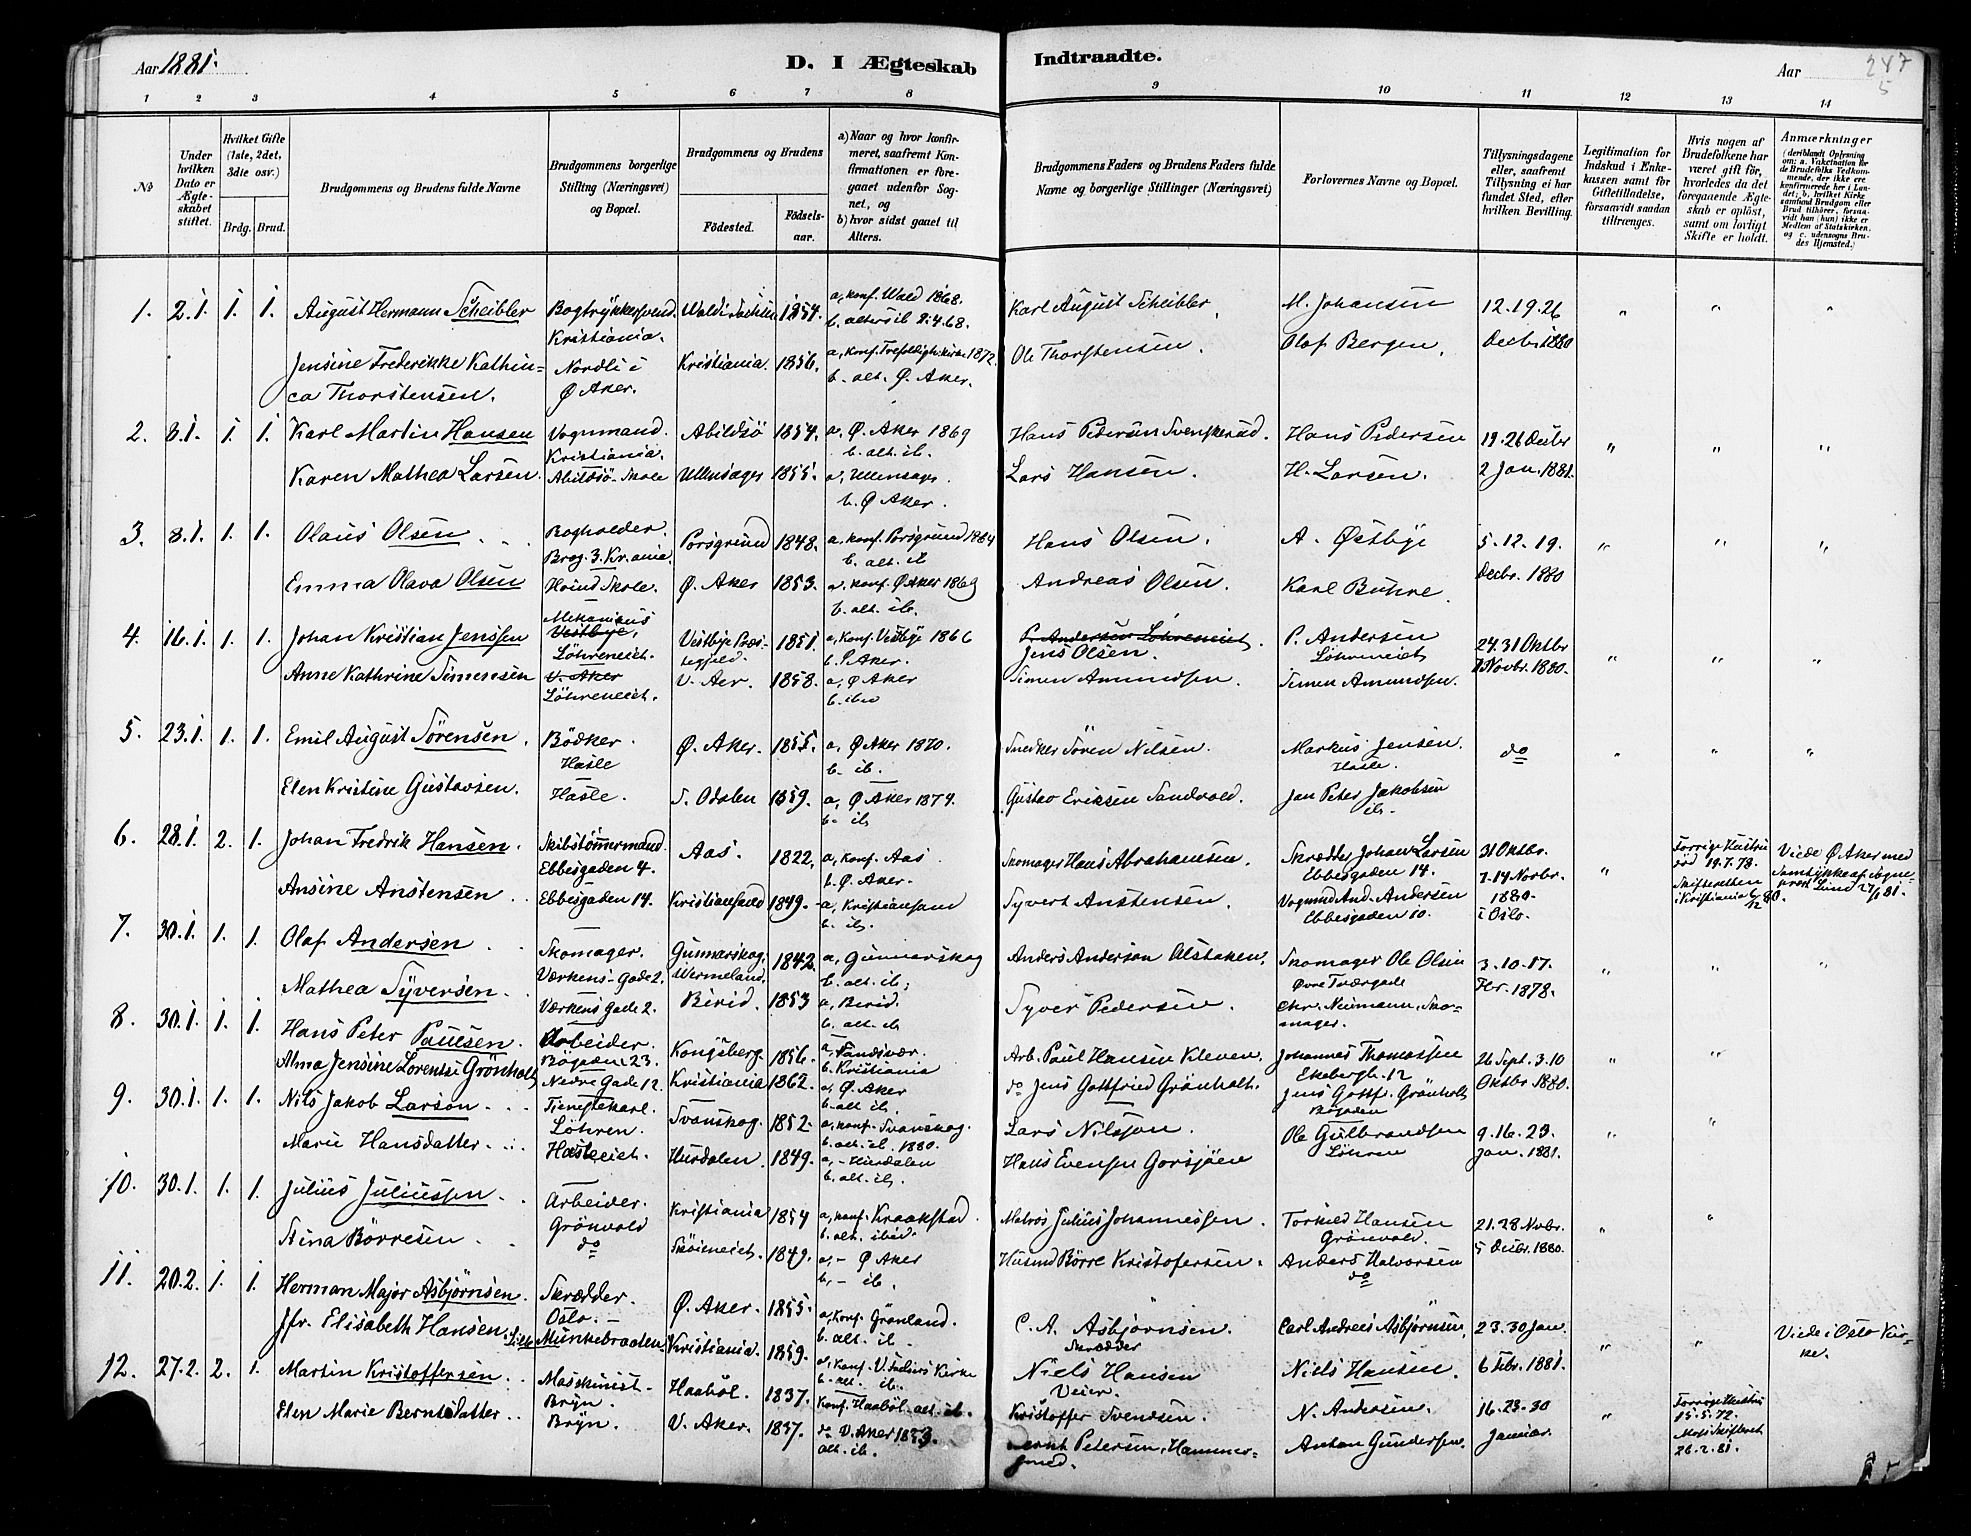 Aar 1881.
D. I Ægteskab Indtraadte.
Aar 247
5
1 2 3 4 5 6 7 8 9 10 11 12 13 14
No
Under hvilken Dato er Ægteskabet stiftet.
Hvilket Gifte (1ste, 2det, 3die osv.)
Brdg. Brud.
Brudgommens og Brudens fulde Navne
Brudgommens borgerlige Stilling (Næringsvei) og Bopæl.
Brudgommens og Brudens
Fødested. Fødselsaar.
a) Naar og hvor konfirmeret, saafremt Konfirmationen er foregaaet udenfor Sognet, og
b) hvor sidst gaaet til Alters.
Brudgommens Faders og Brudens Faders fulde Navne og borgerlige Stillinger (Næringsvei)
Forlovernes Navne og Bopæl.
Tillysningsdagene eller, saafremt Tillysning ei har fundet Sted, efter hvilken Bevilling.
Legitimation for Indskud i Enkekassen samt for Giftetilladelse, forsaavidt saadan tiltrænges.
Hvis nogen af Brudefolkene har været gift før, hvorledes da det foregaaende Ægteskab er opløst, samt om lovligt Skifte er holdt.
Anmærkninger (deriblandt Oplysning om: a. Vakcination for de Brudefolks Vedkommende, der ikke ere konfirmerede her i Landet; b. hvilket Kirkesamfund Brudgom eller Brud tilhører, forsaavidt han (hun) ikke er Medlem af Statskirken, og c. udensogns Brudes Hjemsted.)
1. 2.1. 1. 1. August Hermann Scheibler Bogtrykkersvend. Wald i Sachsen 1854. a, konf. Wald 1868. Karl August Scheibler, M. Johansen 12.19.26 " " "
Kristiania. b. alters ib 2.4.68.
Jensine Frederikke Kathin= Nordli i Kristiania. 1856. a, konf. Trefoldigh. kirke 1872. Ole Thorstensen. Olaf Bergen, Decbr 1880
ca Thorstensen. Ø Aker. b. alt. Ø. Aker.
2. 8.1. 1. 1. Karl Martin Hansen Vognmand. Abildsö 1854. a, Ø. Aker 1869 Hans Pedersen Svenskerud. Hans Pedersen 19.26 Decbr " " "
Kristiania. b. alt. ib.
Karen Mathea Larsen. Abildsö Skole Ullensager 1855. a, Ullensager. Lars Hansen. H. Larsen. 2 Jan. 1881.
b. Ø Aker.
3. 8.1. 1. 1. Olaus Olsen Bogholder. Porsgrund 1848. a. konf. Porsgrund 1864 Hans Olsen. A. Østbye 5.12.19. " " "
Brog. 3. Kr.ania. b. alt. ib
Emma Olava Olsen Hovind Skole. Ø. Aker 1853. a. konf. Ø Aker 1869 Andreas Olsen. Karl Buhre. Decbr. 1880
b. alt. ib.
4. 16.1. 1. 1. Johan Kristian Jenssen Mekanikus Vestbye, Löhreneiet. Vestbye Præstegjeld. 1851. a, konf. Vestbye 1866 P. Andersen Löhreneiet. P. Andersen 24.31 Oktbr " " "
b. Ø. Aker. Jens Olsen. Löhreneiet
Anne Kathrine Simensen V. Aker Löhreneiet. V. Aer. 1858. a, Ø Aker Simen Amundsen. Simen Amundsen. 7 Novbr. 1880.
b. ibid
5. 23.1. 1. 1. Emil August Sörensen. Bödker. Ø. Aker. 1855. a, Ø Aker 1870. Snedker Sören Nilsen. Markus Jensen. do " " "
Hasle b. ib. Hasle.
Elen Kristine Gustavsen. Hasle. S. Odalen 1859. a, Ø Aker 1874. Gustav Eriksen Sandvold. Jan Peter Jakobsen
b. ib ib.
6. 28.1 2. 1. Johan Fredrik Hansen. Skibstömmermand. Aas. 1822, a, konf. Aas. Skomager Hans Abrahamsen. Skrædder Johan Larsen 31 Oktbr. " Forrige Hustru död 19.7.78. Viede Ø. Aker med
Ebbesgaden 4. b. Ø. Aker. Ebbesgaden 14. 7.14 Novbr. Skifteretten Samtykke af Sogne=
Ansine Anstensen Ebbesgaden 14. Kristiansand 1849. a, Kristiansand Syvert Anstensen. Vogmd And. Andersen 1880. i Kristiania prost Lind 27/1 81.
b. ib. Ebbesgaden 10. i Oslo.
7. 30.1. 1. 1. Olaf Andersen Skomager. Gunnarskog. Wermeland. 1842. a, Gunnarskog Anders Anderson Alstaken. Skomager Ole Olsen 3.10.17. " " "
Værkens-Gade 2. b. alt. ib; Øvre Tværgade
Mathea Syversen. Værkens Gade 2. Birid. 1853 a, Birid. Syver Pedersen. Chr. Neumann, Sko= Fbr. 1878.
b. alt. ib mager.
8. 30.1. 1. 1. Hans Peter Paulsen. Arbeider. Kongsberg. 1856. a, Sandsvær. Arb. Paul Hansen Kleven. Johannes Thomassen 26 Sept. 3.10 " "
Bögaden 23. b. Kristiania Ekebergb. 12
Alma Jensine Lorentse Grönholt Nedre Gade 12. Kristiania 1862. a, Ø. Aker do Jens Gottfried Grönholt. Jens Gottfr. Grönholt Oktbr. 1880.
b. alt ib. Bögaden
9. 30.1. 1. 1. Nils Jakob Larson. Tjenestekarl. Svanskog. 1852. a, konf. Svanskog. Lars Nilsson. Ole Gulbrandsen 9.16.23. " "
Löhren. b. alt. ib. 1880. Löhren
Marie Hansdatter. Hasleeiet. Hurdalen. 1849. a, - Hurdalen Hans Evensen Gorsjöen Jan. 1881.
b. alt. ib.
10. 30.1. 1. 1. Julius Juliussen. Arbeider. Kristiania 1854 a, konf. Kraakstad. Matros Julius Johannessen. Torkild Hansen 21.28 Novbr. " "
Grönvold b. alt. ibid. Grönvold.
Stina Börresen do Skøieneiet. 1849. a, - Ø Aker Husmd Börre Kristofersen. Anders Halvorsen 5 Decbr. 1880.
b, - ib. do
11. 20.2. 1. 1. Herman Major Asbjørnsen. Skrædder. Ø. Aker. 1855. a, konf. Grønland. C. A. Asbjørnsen. Carl Andreas Asbjørnsen, 23.30 Jan. " " Viede i Oslo Kir=
Oslo. b. alt. ib. Skrædder ke.
Jfr. Elisabeth Hansen. Munkebraaten. Kristiania. 1859. a, konf. V. Jakobs Kirke Niels Hansen Niels Hansen. 6 Febr. 1881.
b. alt. ib. Veier.
12. 27.2. 2. 1. Martin Kristoffersen. Maskinist. Haaböl. 1837. konf. Haaböl. alt. ib. Kristoffer Svendsen. N. Andersen. 16.23.30 " Forrige Hustru
Bryn. 15.5.72.
Elen Marie Berntsdatter. Bryn. V. Aker. 1837. do V. Aker 1853. Bernt Petersen, Hammer= Anton Gundersen. Januar. Moss Skifteret
alt. ib. smed. 26.2.81.